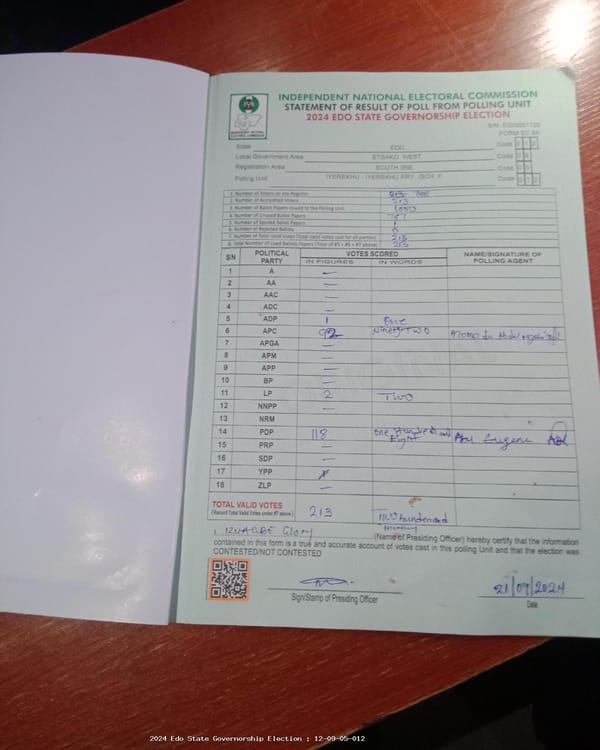 INDEPENDENT NATIONAL ELECTORAL COMMISSION
STATEMENT OF RESULT OF POLL FROM POLLING UNIT
2024 EDO STATE GOVERNORSHIP ELECTION
FORM EC 8A
State EDO Code
Local Government Area ETSAKO WEST Code
Registration Area SOUTH IBIE Code
Polling Unit IYEREKHU - IYEREKHU PRY. SCH. II Code
1. Number of Voters on the Register
2. Number of Accredited Voters 213
3. Number of Ballot Papers Issued to the Polling Unit
4. Number of Unused Ballot Papers
5. Number of Spoiled Ballot Papers 1
6. Number of Rejected Ballots 0
7. Number of Total Valid Votes (Total Valid Votes cast for all parties) 213
8. Total Number of Used Ballots Papers (Total of #5 + #6 + #7 above)
SN POLITICAL PARTY VOTES SCORED NAME/SIGNATURE OF POLLING AGENT
IN FIGURES IN WORDS
1 A —
2 AA —
3 AAC —
4 ADC —
5 ADP 1 One
6 APC 92 Ninety Two
7 APGA —
8 APM —
9 APP —
10 BP —
11 LP 2 TWO
12 NNPP —
13 NRM —
14 PDP 118 One Hundred and Eight Eugene
15 PRP —
16 SDP —
17 YPP
18 ZLP —
TOTAL VALID VOTES 213 Two hundred and
(Record Total Valid Votes under #7 above)
I, Glory (Name of Presiding Officer) hereby certify that the information
contained in this form is a true and accurate account of votes cast in this polling Unit and that the election was
CONTESTED/NOT CONTESTED
21/09/2024
Sign/Stamp of Presiding Officer Date
2024 Edo State Governorship Election : 12-09-05-012